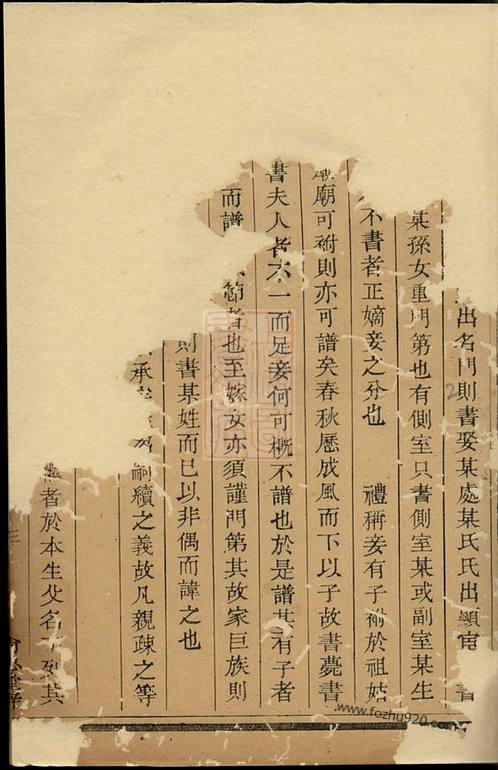 出名門則書娶某處某氏氏出顯宦
某孫女重門第也有側室只書側室某或副室某生
不書者正嫡妾之分也　禮稱妾有子祔於祖姑
廟可祔則亦可譜矣春秋歷成風而下以子故書薨書
書夫人者不一而足妾何可概不譜也於是譜其有子者
而譜　節者也至嫁女亦須謹門第其故家巨族則
則書某姓而已以非偶而諱之也
承　嗣續之義故凡親疎之等
者於本生父名下列其
www.fozhu920.com